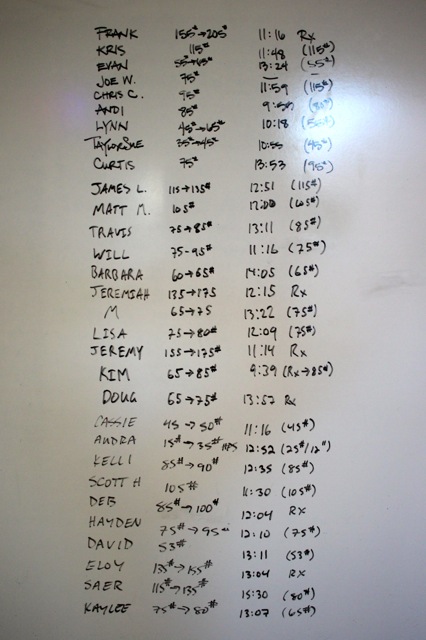 FRANK 155#→205# 11:16 Rx
KRIS 115# 11:48 (115#)
EVAN 55→65# 13:24 (55#)
JOE W. 75# —
CHRIS C. 95# 11:59 (115#)
ANDI 85#
LYNN 45#→65# 10:18
TAYLORSUE 35#→45# 10:55 (45#)
CURTIS 75# 13:53 (95#)
JAMES L. 115→135# 12:51 (115#)
MATT M. 105# 12:00 (105#)
TRAVIS 75→85# 13:11 (85#)
WILL 75-95# 11:16 (75#)
BARBARA 60→65# 14:05 (65#)
JEREMIAH 135→175 12:15 Rx
M 65→75 13:22 (75#)
LISA 75→80# 12:09 (75#)
JEREMY 155→175# 11:14 Rx
KIM 65→85# 9:39 (Rx→85#)
DOUG 65→75# 13:57 Rx
CASSIE 45→50# 11:16 (45#)
AUDRA 15#→35# 12:52 (25#/12")
KELLI 85#→90# 12:35 (85#)
SCOTT H 105# 11:30 (105#)
DEB 85#→100# 12:04 Rx
HAYDEN 75#→95# 12:10 (75#)
DAVID 53# 13:11 (53#)
ELOY 135#→155# 13:04 Rx
SAER 115#→135# 15:30 (80#)
KAYLEE 75#→80# 13:07 (65#)